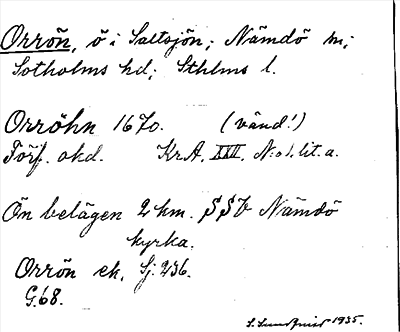 Orrön, ö i Saltsjön; Nämdö sn;
Sotholms hd; Sthlms l.
Orröhn 1670. (vänd!)
Förf. okd. Kr.A. XXII, N:o 1. lit. a.
Ön belägen 2 km. SSV Nämdö
kyrka.
Orrön ek. Sj. 236.
G. 68.
1935.